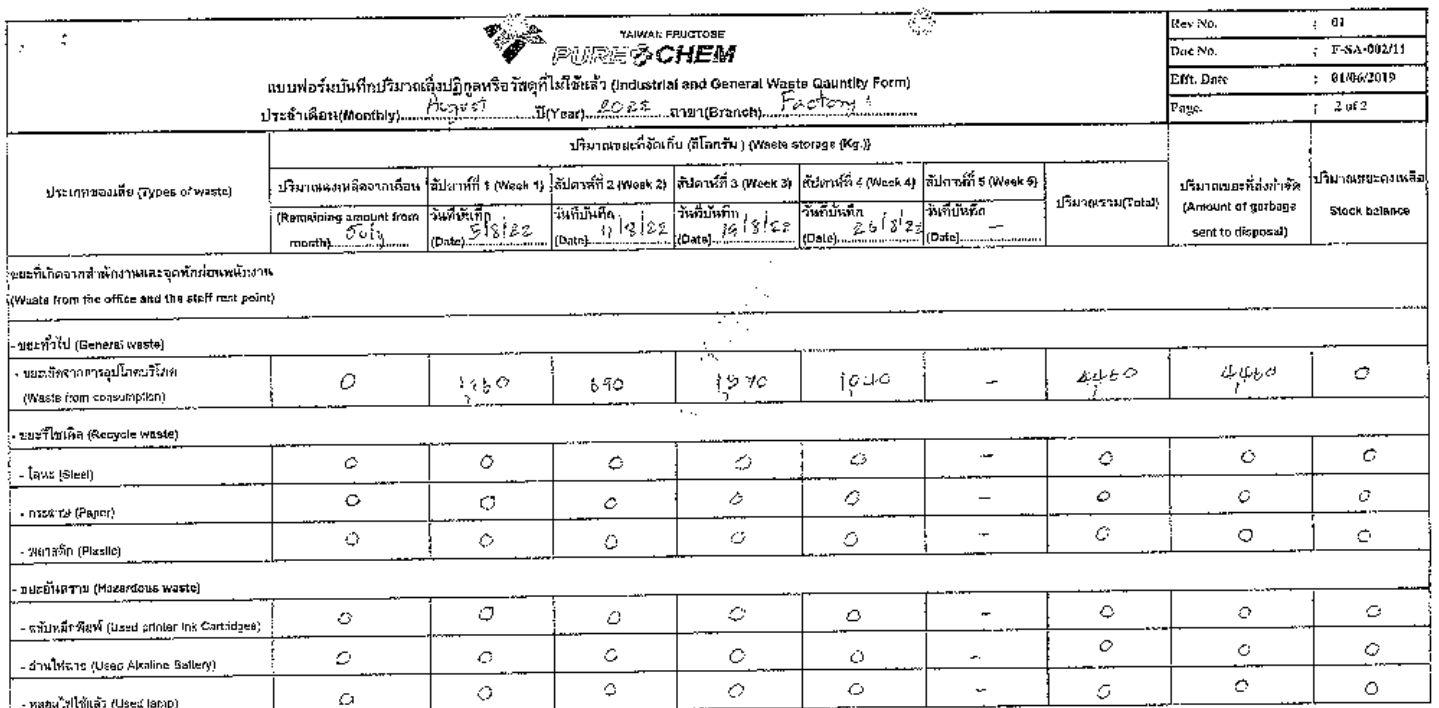 TAIWAN FRUCTOSE
PURE CHEM
แบบฟอร์มบันทึกปริมาณสิ่งปฏิกูลหรือวัสดุที่ไม่ใช้แล้ว (Industrial and General Waste Qauntity Form)
ประจำเดือน(Monthly) August ปี(Year) 2022 สาขา(Branch) Factory 1
Rev No. : 01
Doc No. : F-SA-002/11
Efft. Date : 01/06/2019
Page. : 2 of 2
ประเภทของเสีย (Types of waste)
ปริมาณขยะที่จัดเก็บ (กิโลกรัม) (Waste storage (Kg.))
ปริมาณคงเหลือจากเดือน (Remaining amount from month) July
สัปดาห์ที่ 1 (Week 1) วันที่บันทึก (Date) 5/8/22
สัปดาห์ที่ 2 (Week 2) วันที่บันทึก (Date) 11/8/22
สัปดาห์ที่ 3 (Week 3) วันที่บันทึก (Date) 19/8/22
สัปดาห์ที่ 4 (Week 4) วันที่บันทึก (Date) 26/8/22
สัปดาห์ที่ 5 (Week 5) วันที่บันทึก (Date) -
ปริมาณรวม(Total)
ปริมาณขยะที่ส่งกำจัด (Amount of garbage sent to disposal)
ปริมาณขยะคงเหลือ Stock balance
ขยะที่เกิดจากสำนักงานและจุดพักผ่อนพนักงาน
(Waste from the office and the staff rest point)
- ขยะทั่วไป (General waste)
- ขยะเกิดจากการอุปโภคบริโภค
(Waste from consumption) 0 690 - 4,460 4,460 0
- ขยะรีไซเคิล (Recycle waste)
- โลหะ (Steel) 0 0 0 0 0 - 0 0 0
- กระดาษ (Paper) 0 0 0 0 0 - 0 0 0
- พลาสติก (Plastic) 0 0 0 0 0 - 0 0 0
- ขยะอันตราย (Hazardous waste)
- ตลับหมึกพิมพ์ (Used printer Ink Cartridges) 0 0 0 0 0 - 0 0 0
- ถ่านไฟฉาย (Used Alkaline Battery) 0 0 0 0 0 - 0 0 0
- หลอดไฟใช้แล้ว (Used lamp) 0 0 0 0 0 - 0 0 0